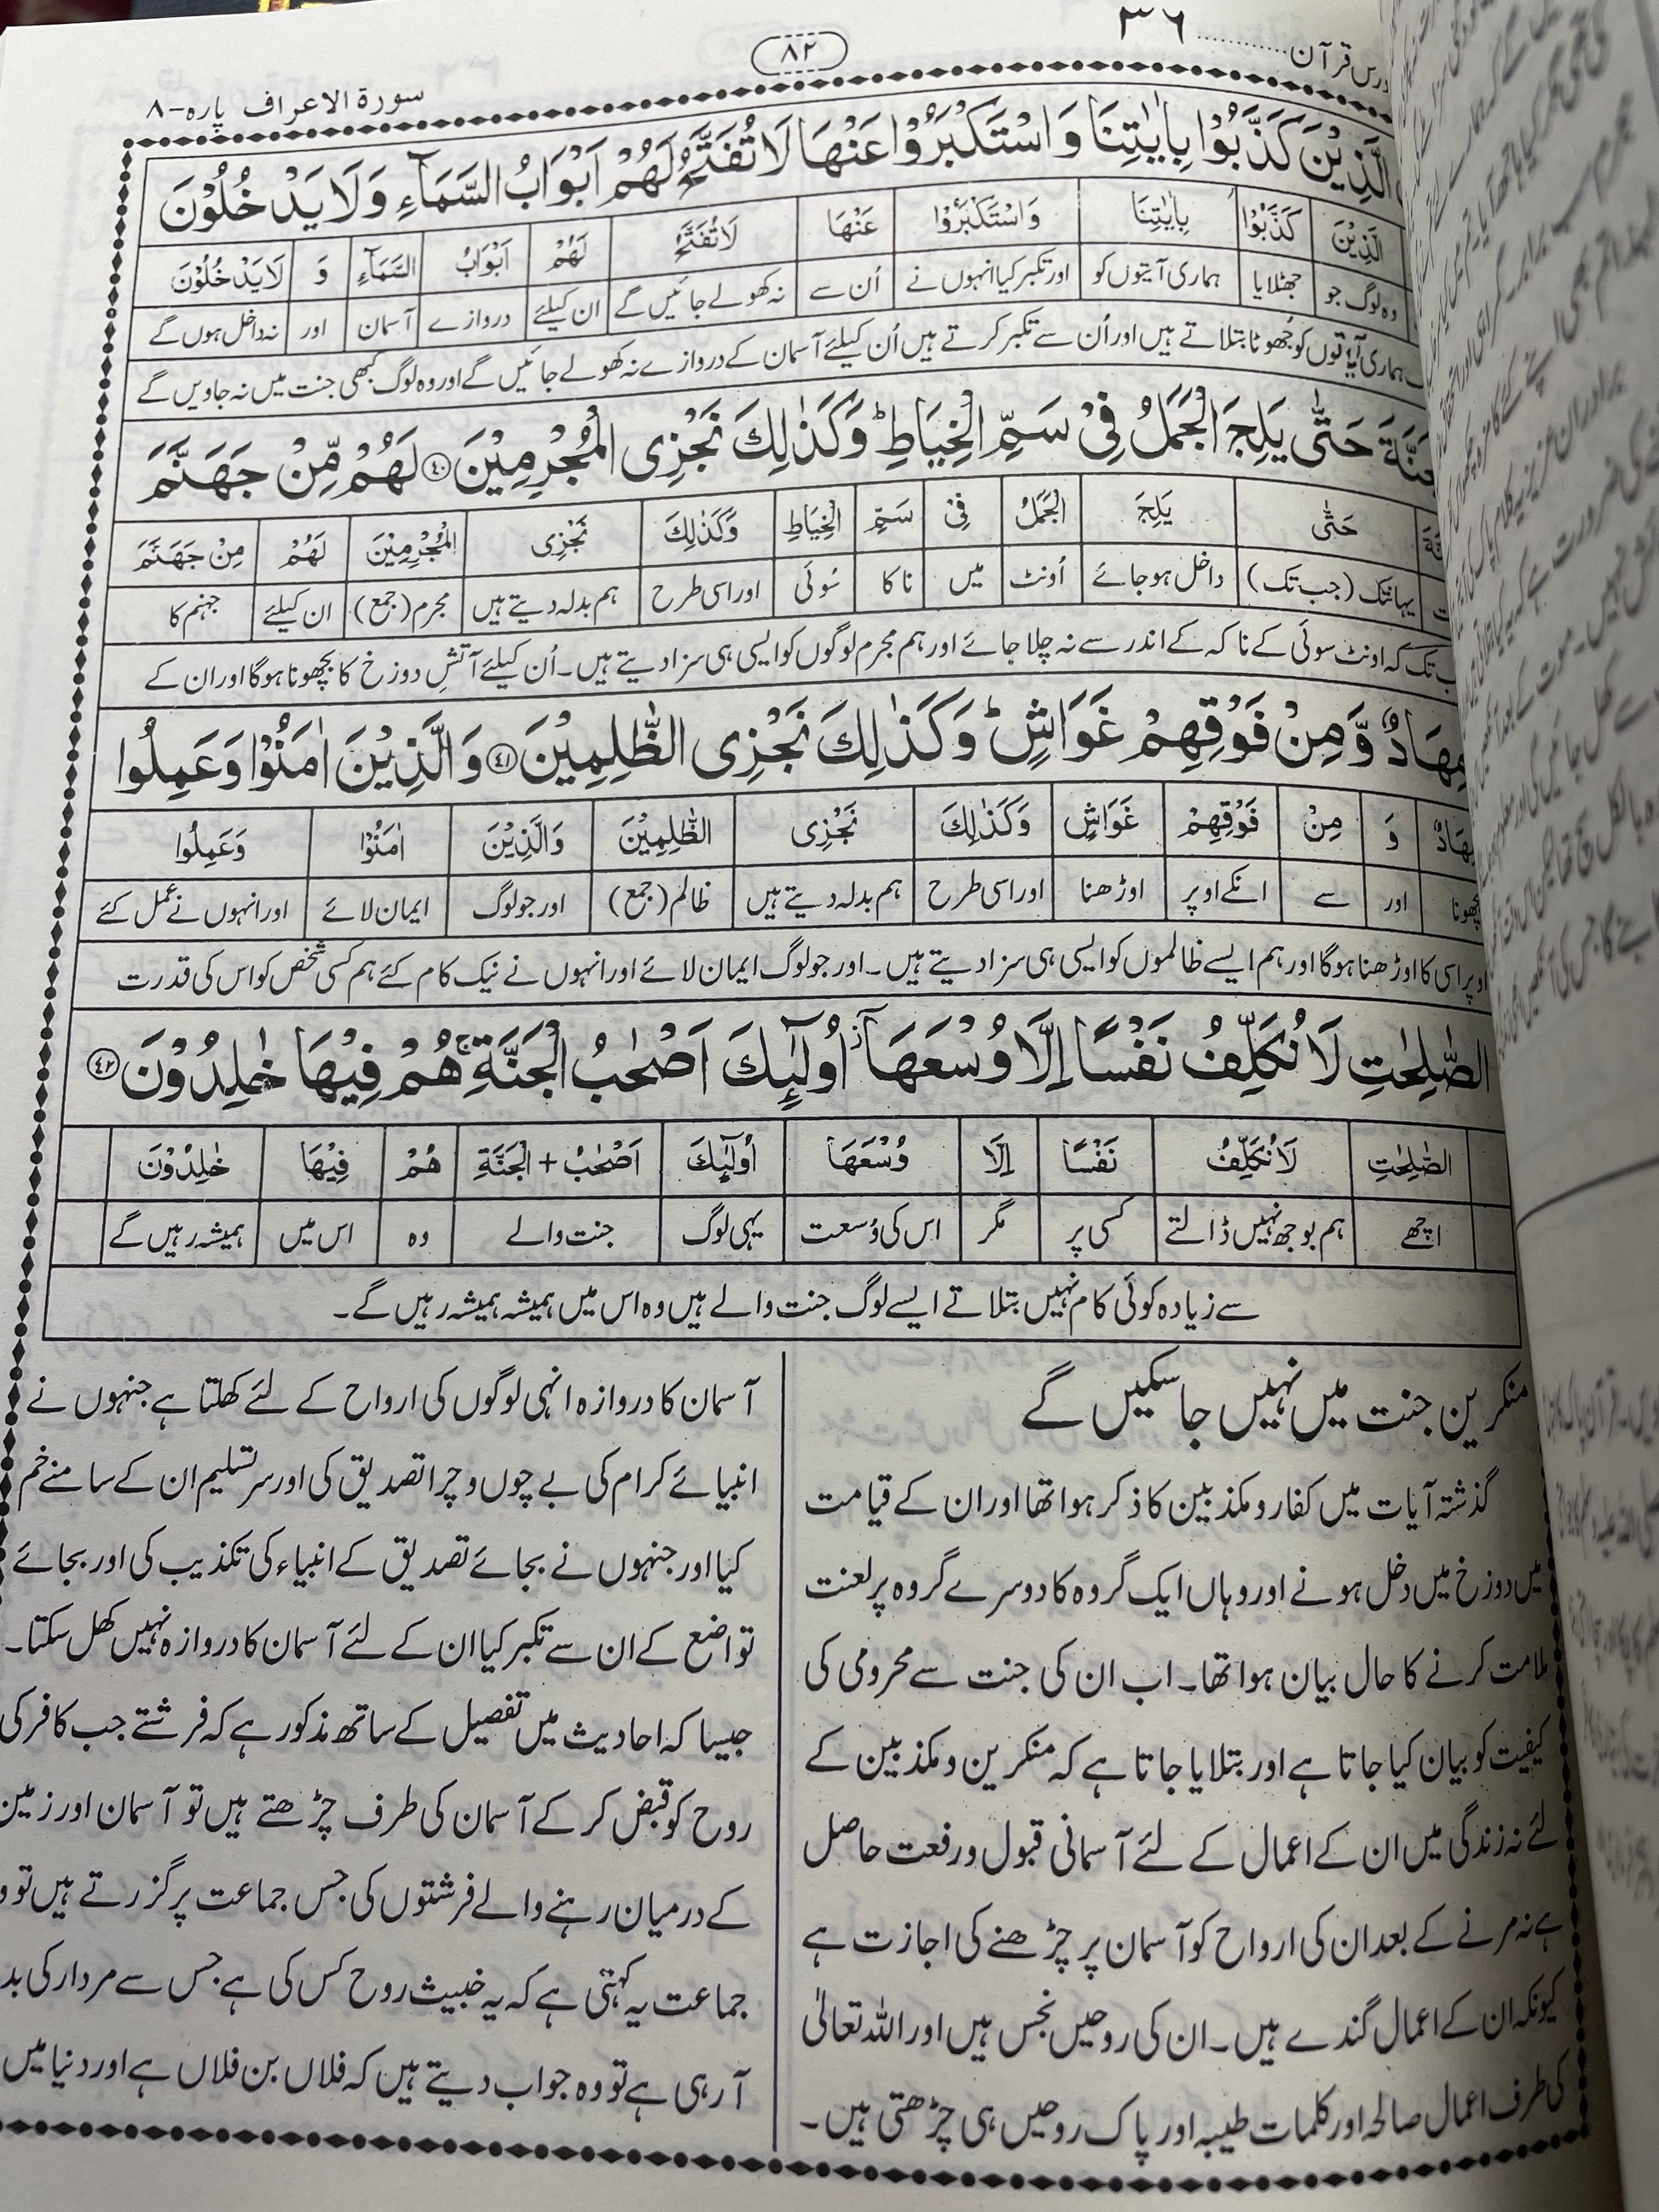 درس قرآن.............۳۶
۸۲
سورة الاعراف پارہ-۸
الَّذِیْنَ كَذَّبُوْا بِاٰیٰتِنَا وَ اسْتَكْبَرُوْا عَنْهَا لَا تُفَتَّحُ لَهُمْ اَبْوَابُ السَّمَآءِ وَ لَا یَدْخُلُوْنَ
الَّذِیْنَ كَذَّبُوْا بِاٰیٰتِنَا وَاسْتَكْبَرُوْا عَنْهَا لَا تُفَتَّحُ لَهُمْ اَبْوَابُ السَّمَآءِ وَ لَا یَدْخُلُوْنَ
وہ لوگ جو جھٹلایا ہماری آیتوں کو اور تکبر کیا انہوں نے اُن سے نہ کھولے جائیں گے ان کیلئے دروازے آسمان اور نہ داخل ہوں گے
ہماری آیتوں کو جھوٹا بتلاتے ہیں اور اُن سے تکبر کرتے ہیں اُن کیلئے آسمان کے دروازے نہ کھولے جائیں گے اور وہ لوگ کبھی جنت میں نہ جاویں گے
حَتّٰی یَلِجَ الْجَمَلُ فِیْ سَمِّ الْخِیَاطِ ؕ وَ كَذٰلِكَ نَجْزِی الْمُجْرِمِیْنَ ۴۰ لَهُمْ مِّنْ جَهَنَّمَ
حَتّٰی یَلِجَ الْجَمَلُ فِیْ سَمِّ الْخِیَاطِ وَكَذٰلِكَ نَجْزِی الْمُجْرِمِیْنَ لَهُمْ مِنْ جَهَنَّمَ
یہانتک (جب تک) داخل ہوجائے اُونٹ میں ناکا سُوئی اور اسی طرح ہم بدلہ دیتے ہیں مجرم (جمع) ان کیلئے جہنم کا
تک کہ اونٹ سوئی کے ناکہ کے اندر سے نہ چلا جائے اور ہم مجرم لوگوں کو ایسی ہی سزا دیتے ہیں۔ اُن کیلئے آتشِ دوزخ کا بچھونا ہوگا اور ان کے
مِهَادٌ وَّ مِنْ فَوْقِهِمْ غَوَاشٍ ؕ وَ كَذٰلِكَ نَجْزِی الظّٰلِمِیْنَ ۴۱ وَ الَّذِیْنَ اٰمَنُوْا وَ عَمِلُوا
مِهَادٌ وَ مِنْ فَوْقِهِمْ غَوَاشٍ وَكَذٰلِكَ نَجْزِی الظّٰلِمِیْنَ وَالَّذِیْنَ اٰمَنُوْا وَعَمِلُوا
بچھونا اور سے انکے اوپر اوڑھنا اور اسی طرح ہم بدلہ دیتے ہیں ظالم (جمع) اور جو لوگ ایمان لائے اور انہوں نے عمل کئے
اوپر اسی کا اوڑھنا ہوگا اور ہم ایسے ظالموں کو ایسی ہی سزا دیتے ہیں۔ اور جو لوگ ایمان لائے اور انہوں نے نیک کام کئے ہم کسی شخص کو اس کی قدرت
الصّٰلِحٰتِ لَا نُكَلِّفُ نَفْسًا اِلَّا وُسْعَهَاۤ ز اُولٰٓىِٕكَ اَصْحٰبُ الْجَنَّةِ ۚ هُمْ فِیْهَا خٰلِدُوْنَ ۴۲
الصّٰلِحٰتِ لَا نُكَلِّفُ نَفْسًا اِلَّا وُسْعَهَا اُولٰٓىِٕكَ اَصْحٰبُ + الْجَنَّةِ هُمْ فِیْهَا خٰلِدُوْنَ
اچھے ہم بوجھ نہیں ڈالتے کسی پر مگر اس کی وُسعت یہی لوگ جنت والے وہ اس میں ہمیشہ رہیں گے
سے زیادہ کوئی کام نہیں بتلاتے ایسے لوگ جنت والے ہیں وہ اس میں ہمیشہ ہمیشہ رہیں گے۔
منکرین جنت میں نہیں جا سکیں گے
گذشتہ آیات میں کفار و مکذبین کا ذکر ہوا تھا اور ان کے قیامت
میں دوزخ میں دخل ہونے اور وہاں ایک گروہ کا دوسرے گروہ پر لعنت
ملامت کرنے کا حال بیان ہوا تھا۔ اب ان کی جنت سے محرومی کی
کیفیت کو بیان کیا جاتا ہے اور بتلایا جاتا ہے کہ منکرین و مکذبین کے
لئے نہ زندگی میں ان کے اعمال کے لئے آسمانی قبول و رفعت حاصل
ہے نہ مرنے کے بعد ان کی ارواح کو آسمان پر چڑھنے کی اجازت ہے
کیونکہ ان کے اعمال گندے ہیں۔ ان کی روحیں نجس ہیں اور اللہ تعالیٰ
کی طرف اعمال صالحہ اور کلمات طیبہ اور پاک روحیں ہی چڑھتی ہیں۔
آسمان کا دروازہ انہی لوگوں کی ارواح کے لئے کھلتا ہے جنہوں نے
انبیائے کرام کی بے چوں و چرا تصدیق کی اور سرتسلیم ان کے سامنے خم
کیا اور جنہوں نے بجائے تصدیق کے انبیاء کی تکذیب کی اور بجائے
تواضع کے ان سے تکبر کیا ان کے لئے آسمان کا دروازہ نہیں کھل سکتا۔
جیسا کہ احادیث میں تفصیل کے ساتھ مذکور ہے کہ فرشتے جب کافر کی
روح کو قبض کر کے آسمان کی طرف چڑھتے ہیں تو آسمان اور زمین
کے درمیان رہنے والے فرشتوں کی جس جماعت پر گزرتے ہیں تو و
جماعت یہ کہتی ہے کہ یہ خبیث روح کس کی ہے جس سے مردار کی بد
آ رہی ہے تو وہ جواب دیتے ہیں کہ فلاں بن فلاں ہے اور دنیا میں